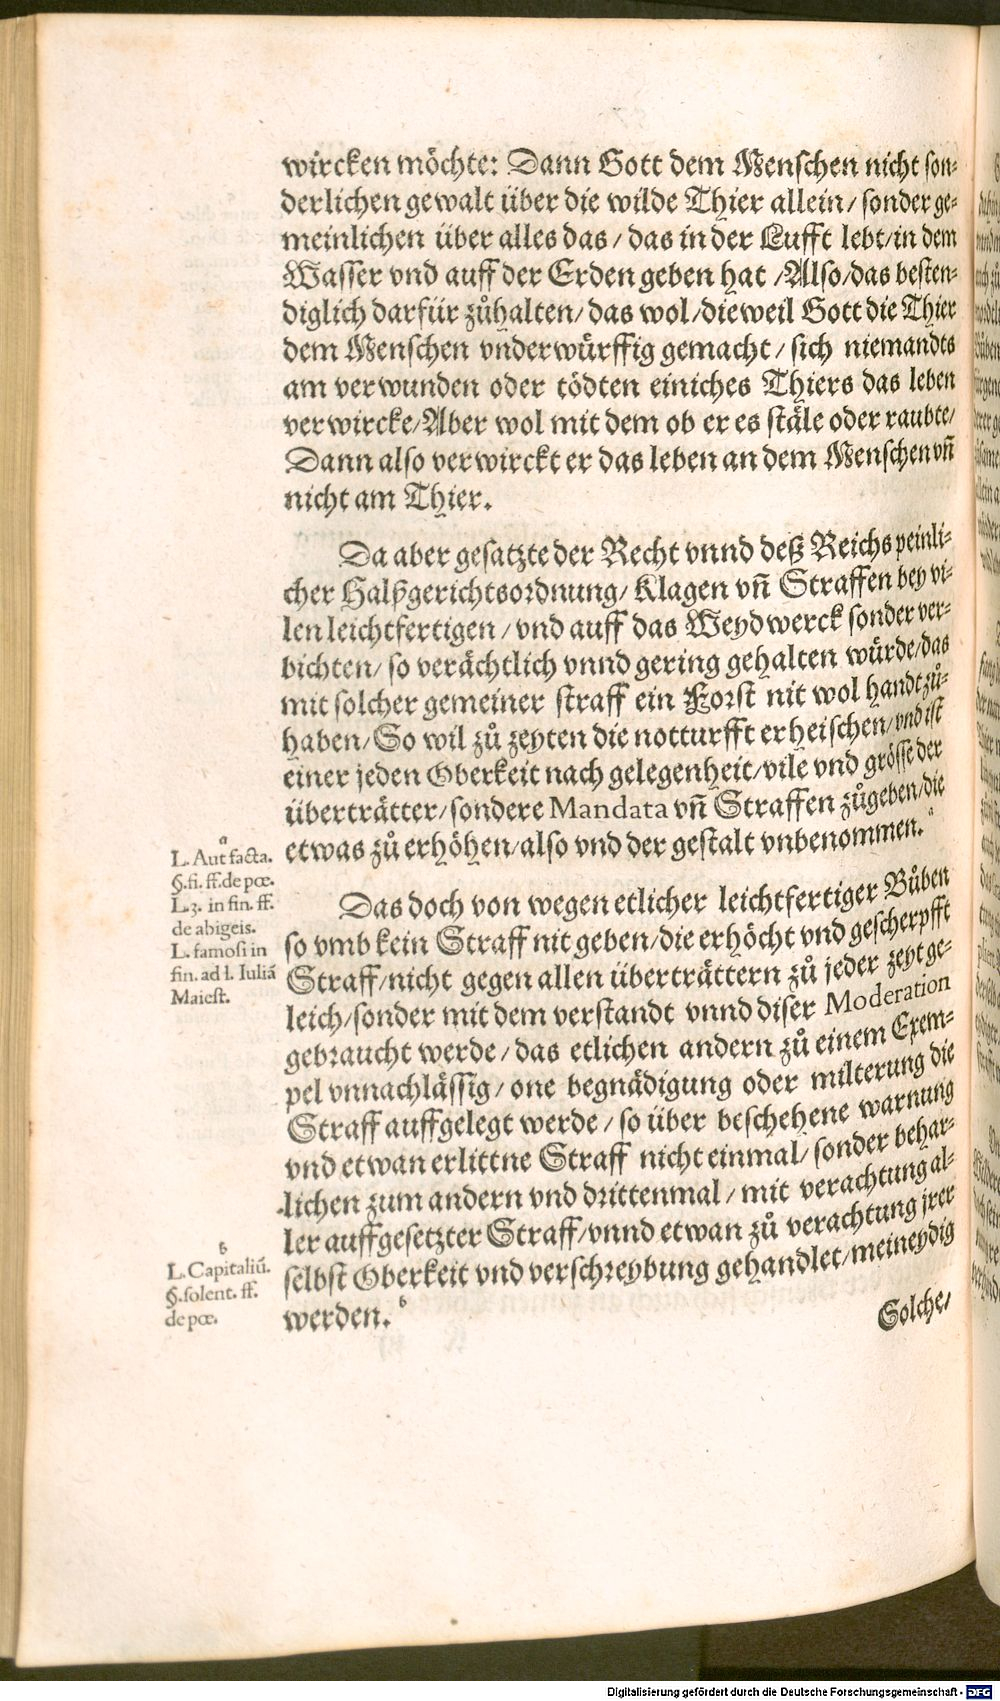 wircken möchte: Dann Gott dem Menschen nicht son-
derlichen gewalt über die wilde Thier allein/ sonder ge-
meinlichen über alles das/ das in der Lufft lebt/ in dem
Wasser vnd auff der Erden geben hat/ Also/ das besten-
diglich darfür zůhalten/ das wol/ dieweil Gott die Thier
dem Menschen vnderwürffig gemacht/ sich niemandts
am verwunden oder tödten einiches Thiers das leben
verwircke/ Aber wol mit dem ob er es stäle oder raubte/
Dann also verwirckt er das leben an dem Menschen vñ
nicht am Thier.
Da aber gesatzte der Recht vnnd deß Reichs peinli-
cher Halßgerichtsordnung/ Klagen vñ Straffen bey vi-
len leichtfertigen/ vnd auff das Weydwerck sonder ver-
bichten/ so verächtlich vnnd gering gehalten würde/ das
mit solcher gemeiner straff ein Forst nit wol handt zů-
haben/ So wil zů zeyten die notturfft erheischen/ vnd ist
einer jeden Oberkeit nach gelegenheit/ vile vnd grösse der
überträtter/ sondere Mandata vñ Straffen zůgeben/ die
etwas zů erhöhen/ also vnd der gestalt vnbenommen. a
a
L. Aut facta.
§. fi. ff. de pœ.
L. 3. in fin. ff.
de abigeis.
L. famosi in
fin. ad l. Iuliã
Maiest.
Das doch von wegen etlicher leichtfertiger Bůben
so vmb kein Straff nit geben/ die erhöcht vnd gescherpfft
Straff/ nicht gegen allen überträttern zů jeder zeyt ge-
leich/ sonder mit dem verstandt vnnd diser Moderation
gebraucht werde/ das etlichen andern zů einem Exem-
pel vnnachlässig/ one begnädigung oder milterung die
Straff auffgelegt werde/ so über beschehene warnung
vnd etwan erlittne Straff nicht einmal/ sonder behar-
lichen zum andern vnd drittenmal/ mit verachtung al-
ler auffgesetzter Straff/ vnnd etwan zů verachtung jrer
selbst Oberkeit vnd verschreybung gehandlet/ meineydig
werden. b
b
L. Capitaliũ.
§. solent. ff.
de pœ.
Solche/
Digitalisierung gefördert durch die Deutsche Forschungsgemeinschaft - DFG